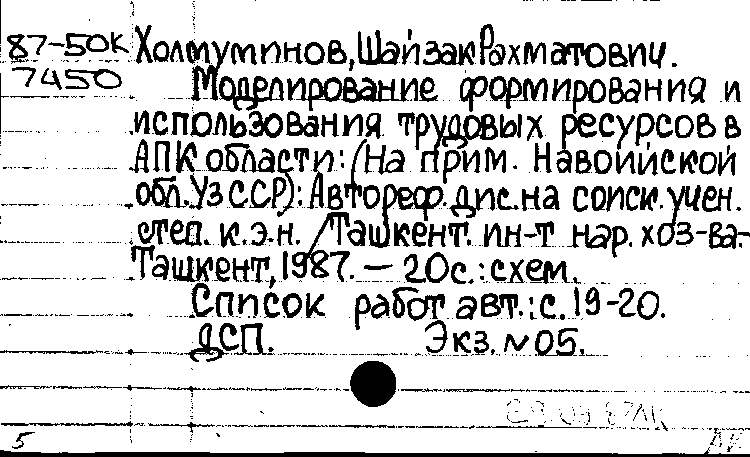 87-50К Холмуминов, Шайзак Рахматович.
7450 Моделирование формирования и
использования трудовых ресурсов в
АПК области: (На прим. Навоийской
обл. УзССР): Автореф. дис. на соиск. учен.
степ. к.э.н. /Ташкент. ин-т нар. хоз-ва.-
Ташкент, 1987. — 20с.: схем.
Список работ авт.: с. 19-20.
ДСП. Экз. №05.
5